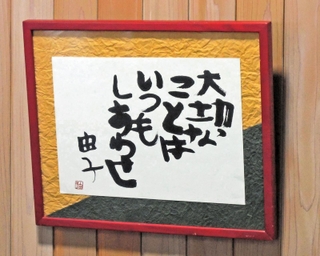 大切な
ことは
いつも
しあわせ
由子